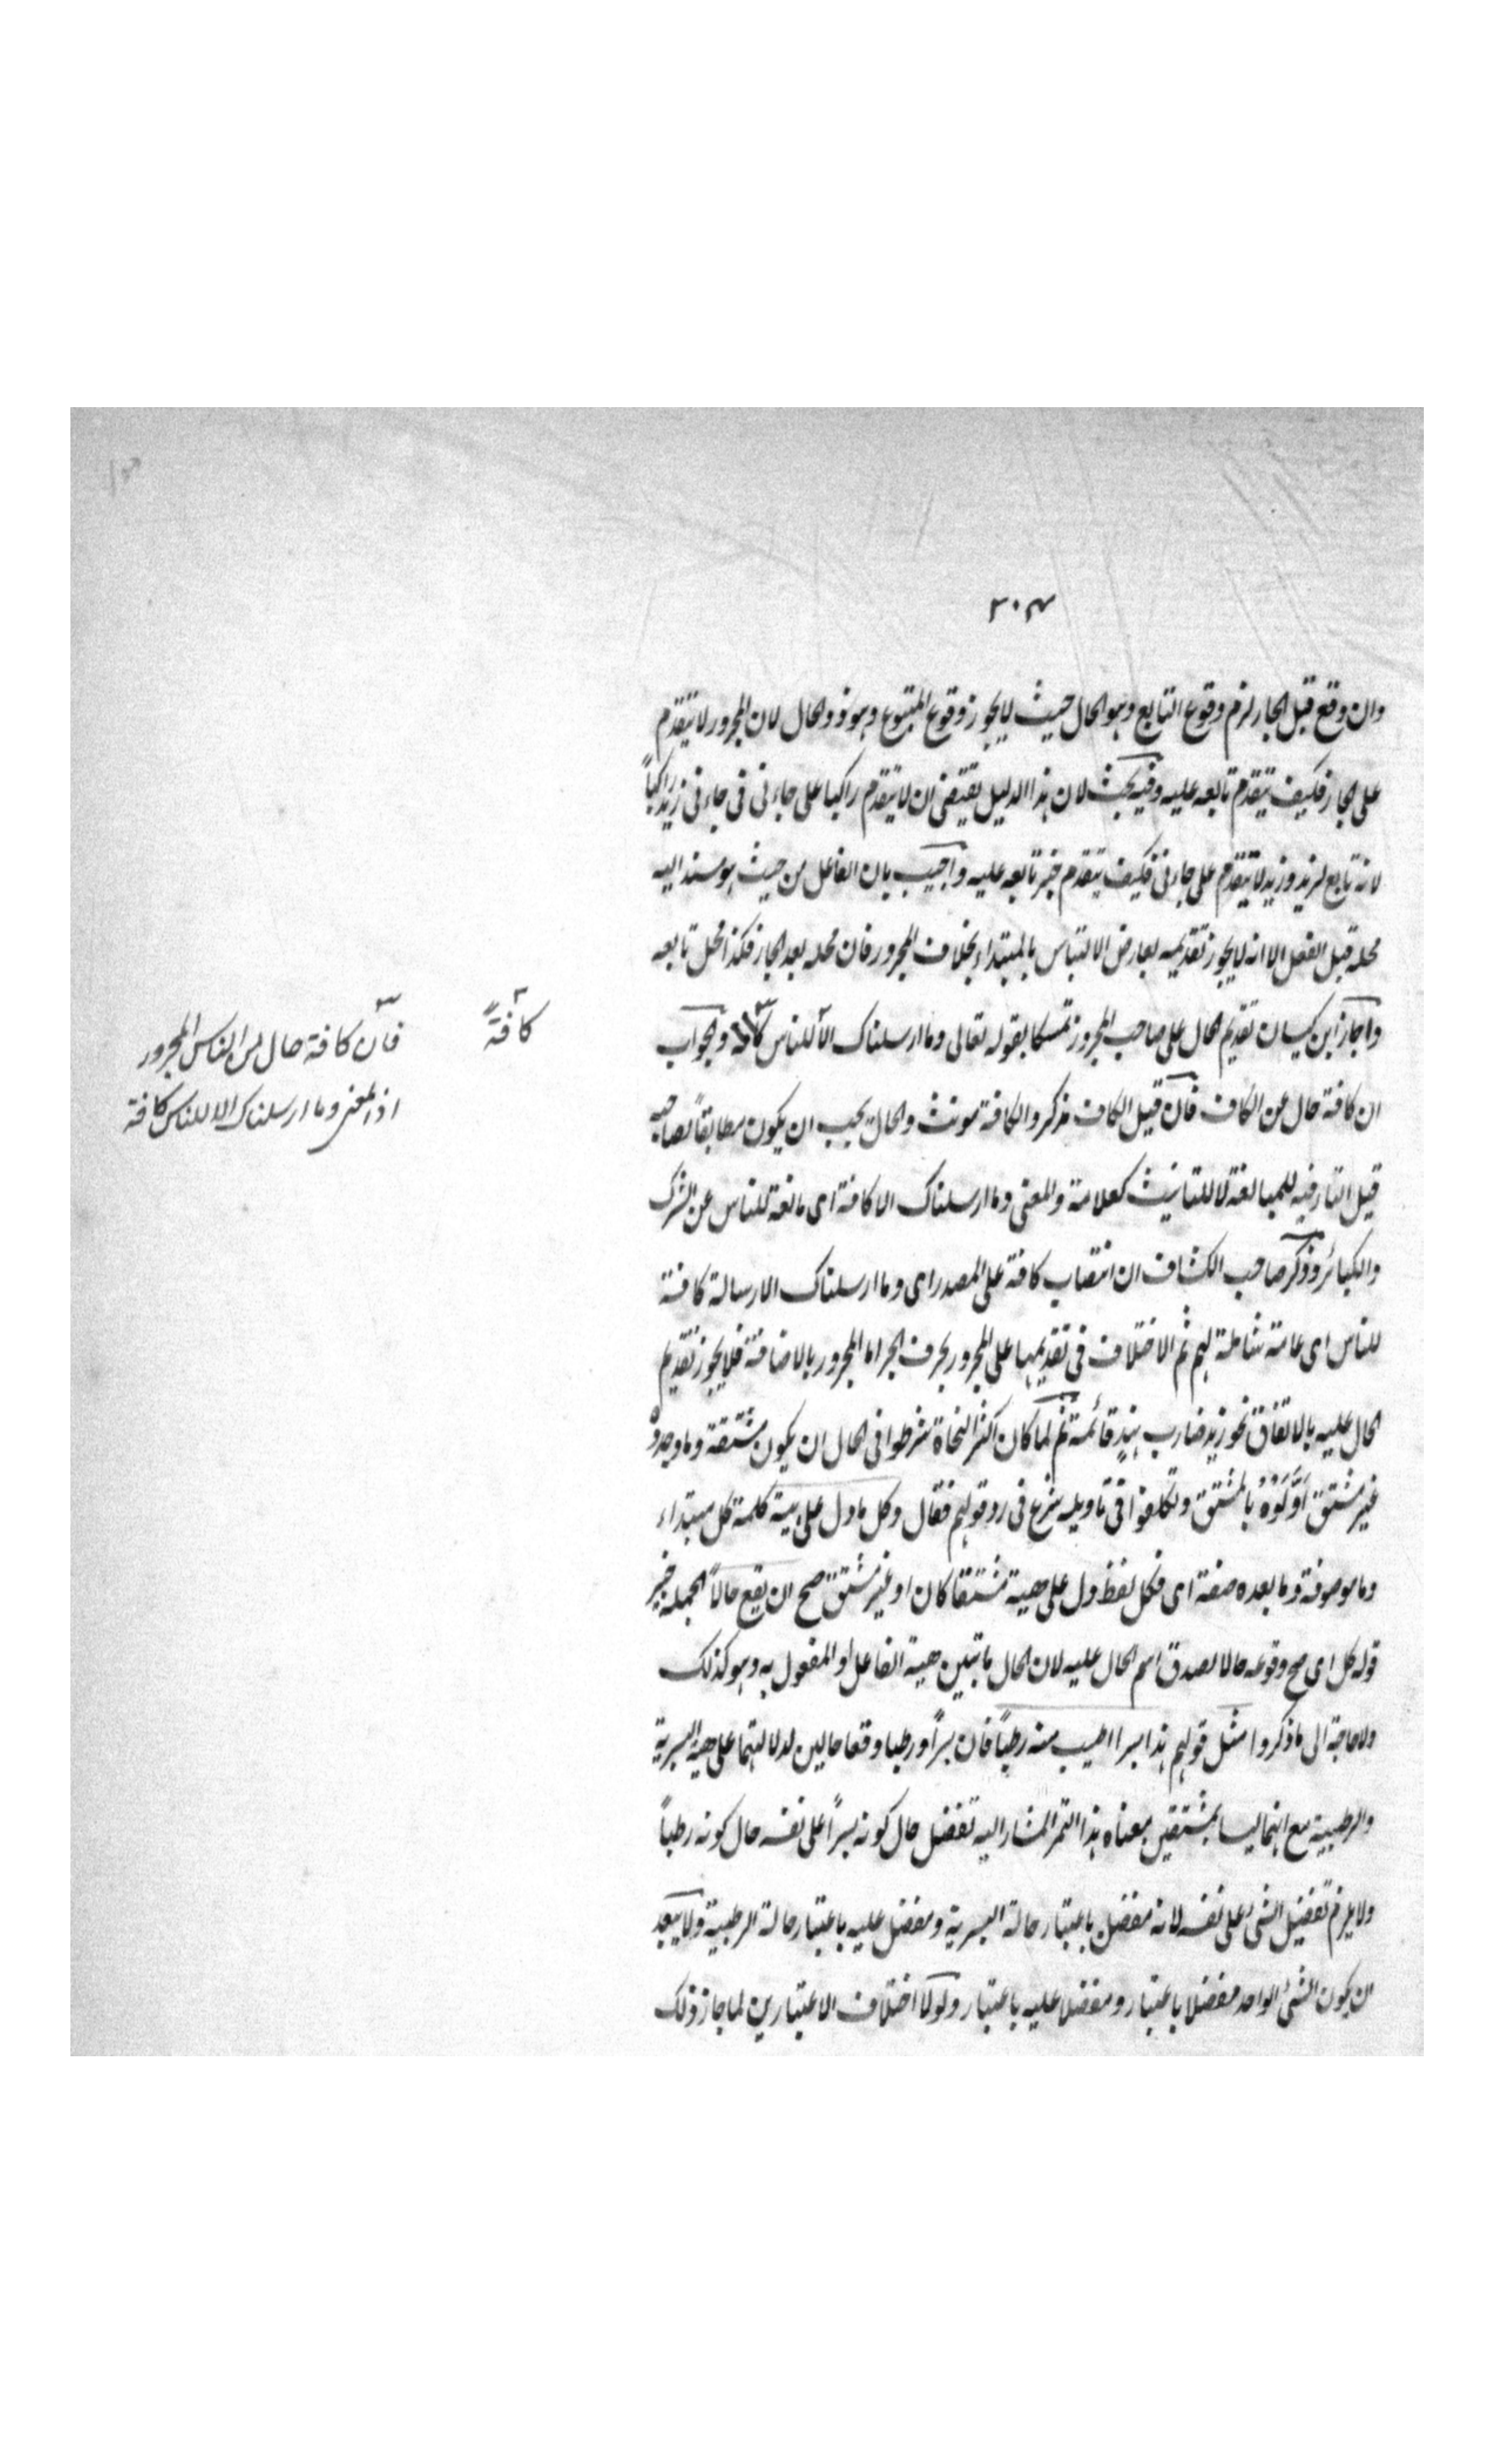 ٣٠٣
وان وقع قبل الجار لزم وقوع التابع وهو الحال حيث لا يجوز وقوع المتبوع وهو ذو الحال لان المجرور لا يتقدم
على الجار فكيف يتقدم تابعه عليه وفيه بحث لان هذا الدليل يقتضى ان لا يتقدم راكبا على جاءنى فى جاءنى زيد راكباً
لانه تابع لزيد وزيد لا يتقدم على جاءنى فكيف يتقدم تابعه عليه واجيب بان الفاعل من حيث هو مسند اليه
محله قبل الفعل الا انه لا يجوز تقديمه بعارض الالتباس بالمبتداء بخلاف المجرور فان محله بعد الجار فكذا محل تابعه
واجاز ابن كيسان تقديم الحال على صاحب المجرور تمسكا بقوله تعالى وما ارسلناك الا للناس والجواب
كافةً
فان كافة حال من الناس المجرور
اذ المعنى وما ارسلناك الا للناس كافة
ان كافة حال عن الكاف فان قيل الكاف مذكر والكافة مونث والحال يجب ان يكون مطابقاً لصاحبه
قيل التاء فيه للمبالغة لا للتانيث كعلامة والمعنى وما ارسلناك الا كافة اى مانعة للناس عن الشرك
والكبائر وذكر صاحب الكشاف ان انتصاب كافة على المصدر اى وما ارسلناك الا رسالة كافة
للناس اى عامة شاملة لهم ثم الاختلاف فى تقديمها على المجرور بحرف الجر اما المجرور بالاضافة فلا يجوز تقديم
الحال عليه بالاتفاق نحو زيد ضارب هندٍ قائمة ثم لما كان اكثر النحاة شرطوا فى الحال ان يكون مشتقة وما وجدوه
غير مشتق اَوَّلُوْهُ بالمشتق وتكلفوا فى تاويله شرع فى رد قولهم فقال وكل ما دل على هيئة كلمة كل مبتداء
وما موصوفة وما بعده صفة اى فكل لفظ دل على هيئة مشتقا كان او غير مشتق صح ان يقع حالاً الجملة خبر
قوله كل اى صح وقوعه حالا لصدق اسم الحال عليه لان الحال ما تبين هيئة الفاعل او المفعول به وهو كذلك
ولا حاجة الى ما ذكروا مثل قولهم هذا بسرا اطيب منه رطباً فان بسراً ورطبا وقعا حالين لدلالتهما على هيئة البسرية
والرطبية مع انهما ليسا بمشتقين معناه هذا التمر المشار اليه تفضل حال كونه بسراً على نفسه حال كونه رطباً
ولا يلزم تفضيل الشئ على نفسه لانه مفضل باعتبار حالة البسرية ومفضل عليه باعتبار حالة الرطبية ولا يبعد
ان يكون الشئ الواحد مفضلا باعتبار ومفضلا عليه باعتبار ولولا اختلاف الاعتبارين لما جاز ذلك